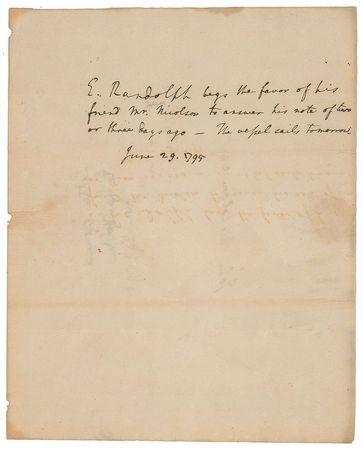 E. Randolph begs the favor of his
friend Mr. Nicolson to answer his note of two
or three days ago – The vessel sails tomorrow.
June 29. 1795